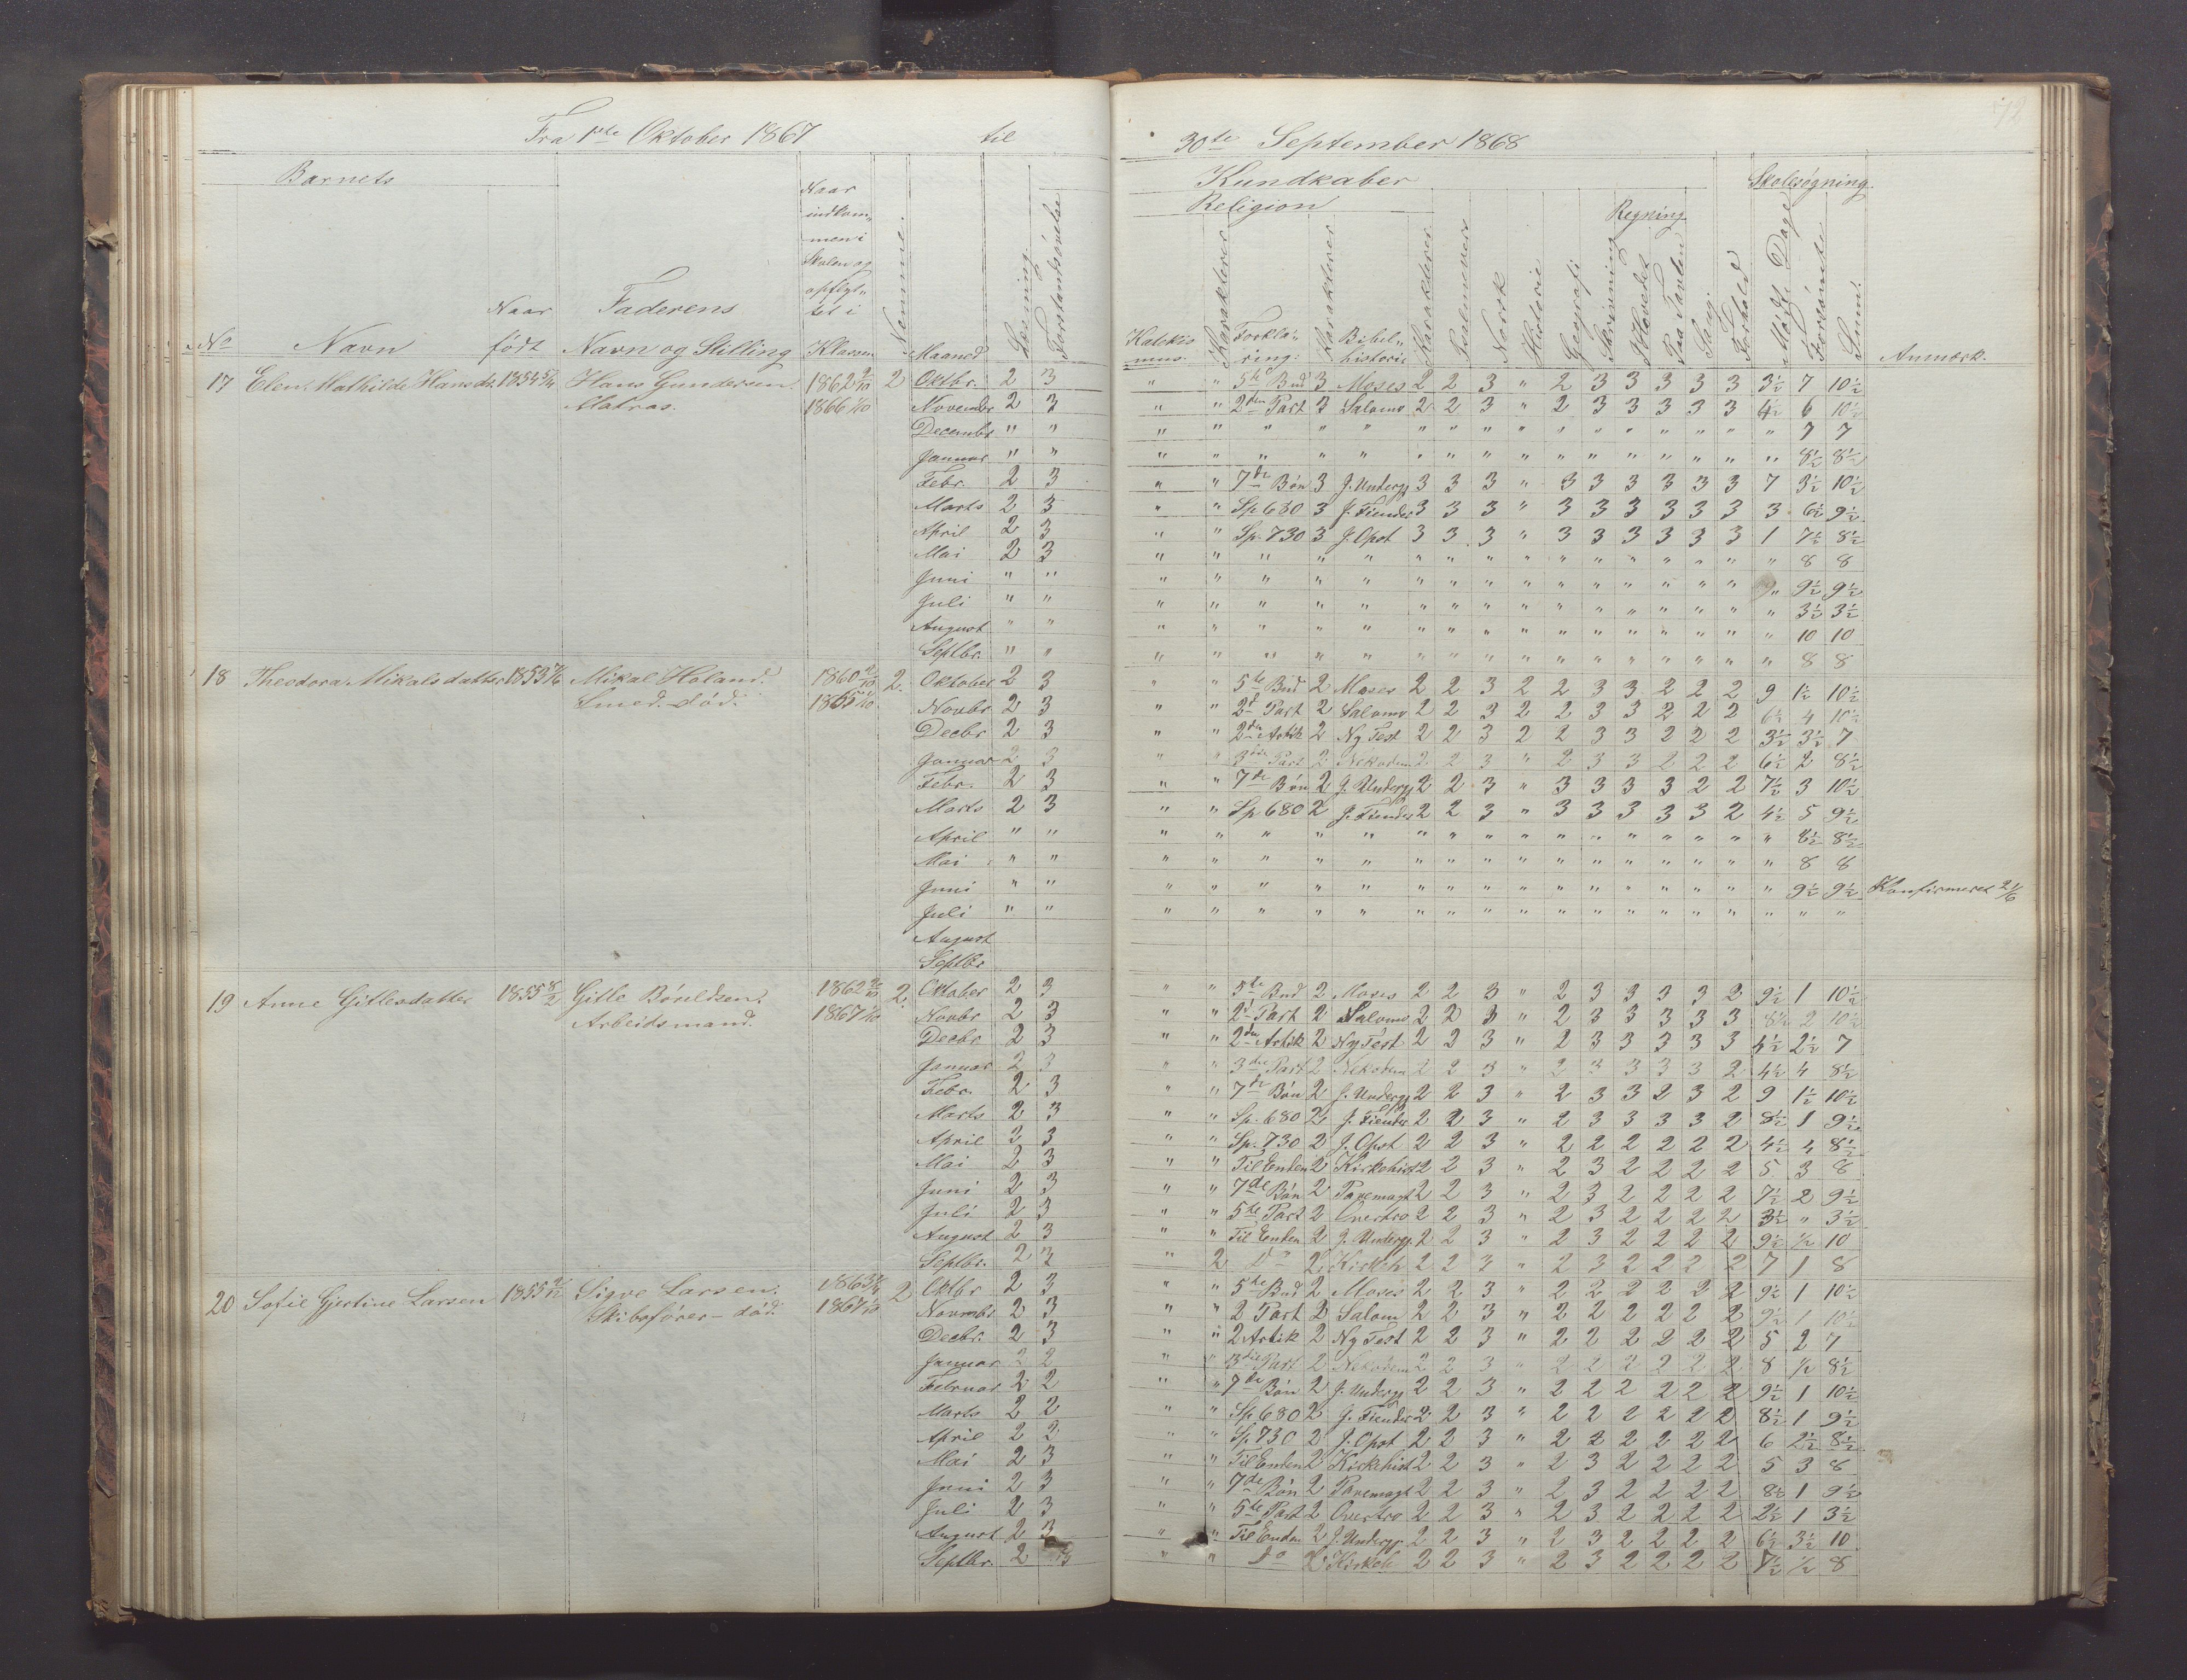 72
Fra 1ste Oktober 1867 til 30te September 1868
Barnets
Kundkaber
Skolesøgning.
Religion
Regning.
Naar indkom„
men i
Skolen og
opflyt„
tet i
Klassen
No
Navn
Naar
født
Faderens
Navn og Stilling
Nummer.
Maaned
Læsning.
Forstandsøvelse
Katekis
mus.
Karakterer
Forkla„
ring.
Karakterer
Bibel„
historie
Karakterer
Psalmevers
Norsk
Historie
Geografi
Skrivning
Hovedet
Paa Tavlen
Sang.
Forhold
Mødt Dage
Forsømte
Sum.
Anmærk.
17 Elen Mathilde Hansdt. 1854 Hans Gundersen. 1862 2 Oktbr. 2 3 " " 5te Bud 3 Moses 2 2 3 " 2 3 3 3 3 3 3½ 7 10½
Matros. 1866 1/10 November 2 3 " " 2den Part 3 Salomo 2 2 3 " 2 3 3 3 3 3 4½ 6 10½
Decembr " " " " " " " " " " " " " " " " " " 7 7
Januar " " " " " " " " " " " " " " " " " " 8½ 8½
Febr. 2 3 " " 7de Bøn 3 J. Underg 3 3 3 " 3 3 3 3 3 3 7 3½ 10½
Marts 2 3 " " Sp 680 3 J. Fiender 3 3 3 " 3 3 3 3 3 3 3 6½ 9½
April 2 3 " " Sp. 730 3 J. Opst 3 3 3 " 3 3 3 3 3 3 1 7½ 8½
Mai 2 3 " " " " " " " " " " " " " " " " 8 8
Juni " " " " " " " " " " " " " " " " " " 9½ 9½
Juli " " " " " " " " " " " " " " " " " " 3½ 3½
August " " " " " " " " " " " " " " " " " " 10 10
Septbr. " " " " " " " " " " " " " " " " " " 8 8
18 Theodora Mikalsdatter 1853 Mikal Holand. 1860 2. Oktober 2 3 " " 5te Bud 2 Moses 2 2 3 2 2 3 3 2 2 2 9 1½ 10½
Smed. død. 1865 1/10 Novbr 2 3 " " 2d Part 2 Salomo 2 2 3 2 2 3 3 2 2 2 6½ 4 10½
Decbr 2 3 " " 2den Artik 2 Ny Test 2 2 3 2 2 3 3 2 2 2 3½ 3½ 7
Januar 2 3 " " 3die Part 2 Nekodem 2 2 3 " 2 3 3 2 2 2 6½ 2 8½
Febr. 2 3 " " 7de Bøn 2 J. Underg 2 2 3 " 3 3 3 3 2 2 7½ 3 10½
Marts 2 3 " " Sp 680 2 J. Fiender 2 2 3 " 3 3 3 3 3 2 4½ 5 9½
April " " " " " " " " " " " " " " " " " " 8½ 8½
Mai " " " " " " " " " " " " " " " " " " 8 8
Juni " " " " " " " " " " " " " " " " " " 9½ 9½ Konfirmeret 21/6
Juli " " " " " " " " " " " " " " " " " " " "
August
Septbr
19 Anne Gitlesdatter 1855 8/2 Gitle Børeldsen. 1862 2. Oktober 2 3 " " 5te Bud 2 Moses 2 2 3 " 2 3 3 3 3 2 9½ 1 10½
Arbeidsmand. 1867 1/10 Novbr 2 3 " " 2d Part 2 Salomo 2 2 3 " 2 3 3 3 3 3 8½ 2 10½
Decbr 2 3 " " 2den Artik 2 Ny Test 2 2 3 " 2 3 3 3 3 3 4½ 2½ 7
Januar 2 3 " " 3die Part 2 Nekodem 2 2 3 " 2 3 3 3 3 2 4½ 4 8½
Febr. 2 3 " " 7de Bøn 2 J. Underg 2 2 3 " 2 3 3 2 3 2 9 1½ 10½
Marts 2 3 " " Sp. 680 2 J. Fiender 2 2 3 " 2 3 3 3 3 2 8½ 1 9½
April 2 3 " " Sp. 730 2 J. Opst 2 2 3 " 2 2 2 2 2 2 4½ 4 8½
Mai 2 3 " " Til Enden 2 Kirkehist 2 2 3 " 2 3 2 2 2 2 5 3 8
Juni 2 3 " " 7de Bøn 2 Pavemagt 2 2 3 " 2 3 2 2 2 2 7½ 2 9½
Juli 2 3 " " 5te Part 2 Overtro 2 2 3 " 2 3 2 2 2 2 3½ " 3½
August 2 3 " " Til Enden 2 J. Underg. 2 2 3 " 2 3 2 2 2 2 9½ ½ 10
Septbr. 2 3 " 2 Do 2 Kirkeh 2 2 3 " 2 3 2 2 2 2 7 1 8
20 Sofie Gjertine Larsen 1855 Sigve Larsen. 1863 2 Oktbr 2 3 " " 5te Bud 2 Moses 2 2 3 " 2 2 2 2 2 2 9½ 1 10½
Skibsfører - død. 1867 1/10 Novembr 2 3 " " 2 Part 2 Salom 2 2 3 " 2 2 2 2 2 2 9½ 1 10½
Decbr. 2 3 " " 2 Artik 2 Ny Test 2 2 3 " 2 2 2 2 2 2 5 2 7
Januar 2 2 " " 3die Part 2 Nekodem 2 2 3 " 2 2 2 2 2 2 8 ½ 8½
Februar 2 2 " " 7de Bøn 2 J. Underg 2 2 3 " 2 2 2 2 2 2 9½ 1 10½
Marts 2 2 " " Sp. 680 2 J. Fiender 2 2 3 " 2 2 2 2 2 2 8½ 1 9½
April 2 2 " " Sp. 730 2 J. Opst 2 2 3 " 2 2 2 2 2 2 6 2½ 8½
Mai 2 3 " " Til Enden 2 Kirkehist 2 2 3 " 2 3 2 2 2 2 5 3 8
Juni 2 3 " " 7de Bøn 2 Pavemagt 2 2 3 " 2 3 2 2 2 2 8½ 1 9½
Juli 2 3 " " 5te Part 2 Overtro 2 2 3 " 2 3 2 2 2 2 2½ 1 3½
August 2 3 " " Til Enden 2 J. Underg. 2 2 3 " 2 3 2 2 2 2 6½ 3½ 10
Septbr. 2 3 " " Do 2 Kirkeh 2 2 3 " 2 3 2 2 2 2 7½ ½ 8